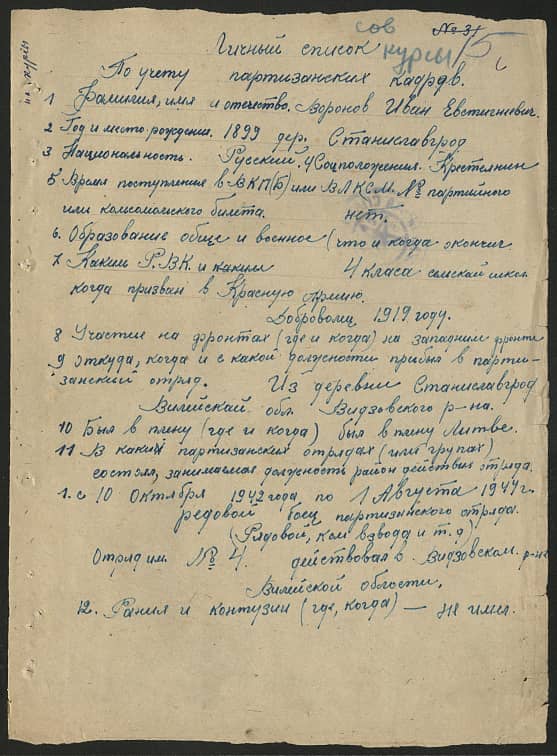 № 31
сов
курсы
Личный список
По учету партизанских кадров.
1 Фамилия, имя и отечество. Воронов Иван Евстигневич.
2 Год и место рождения. 1899 дер. Станиславгрод
3 Национальность. Русский. 4 Соцположения. Крестьянин
5 Время поступления в ВКП(Б) или ВЛКСМ. № партийного
или комсомольского билета. нет.
6. Образование обще и военное (что и когда окончил
7. Каким Р.В.К. и каким 4 класа селской школ
когда призван в Красную Армию.
Доброволец 1919 году.
8 Участие на фронтах (где и когда) на западним фронте
9 Откуда, когда и с какой должности прибыл в парти-
занский отряд. Из деревни Станиславгрод
Вилейской обл. Видзовского р-на.
10 Был в плену (где и когда) был в плену Литве.
11 В каких партизанских отрядах (или групах)
состоял, занимаемая должность район действия отряда.
1. с 10 Октября 1942 года по 1 Августа 1944 г.
редовой боец партизанского отряда.
(Рядовой, ком взвода и т.д)
Отряд им. № 4. действовал в Видзовском р-не
Вилейской облости.
12. Рания и контузии (где, когда) — не имел.